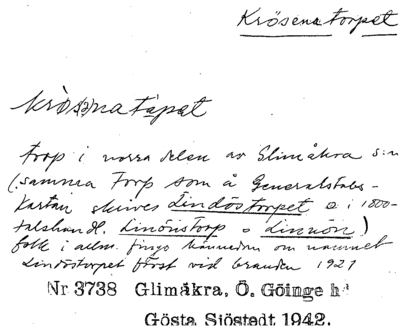 Krösenatorpet
krö(s)ena tapat
torp i norra delen av Glimåkra s:n
(samma torp som å Generalstabs-
kartan skrives Lindöstorpet o i 1800-
talshandl. Linönstorp o Linnön)
folk i allm. fingo kännedom om namnet
Lindöstorpet först vid branden 1921
Nr 3738 Glimåkra, Ö. Göinge hd
Gösta Sjöstedt 1942.